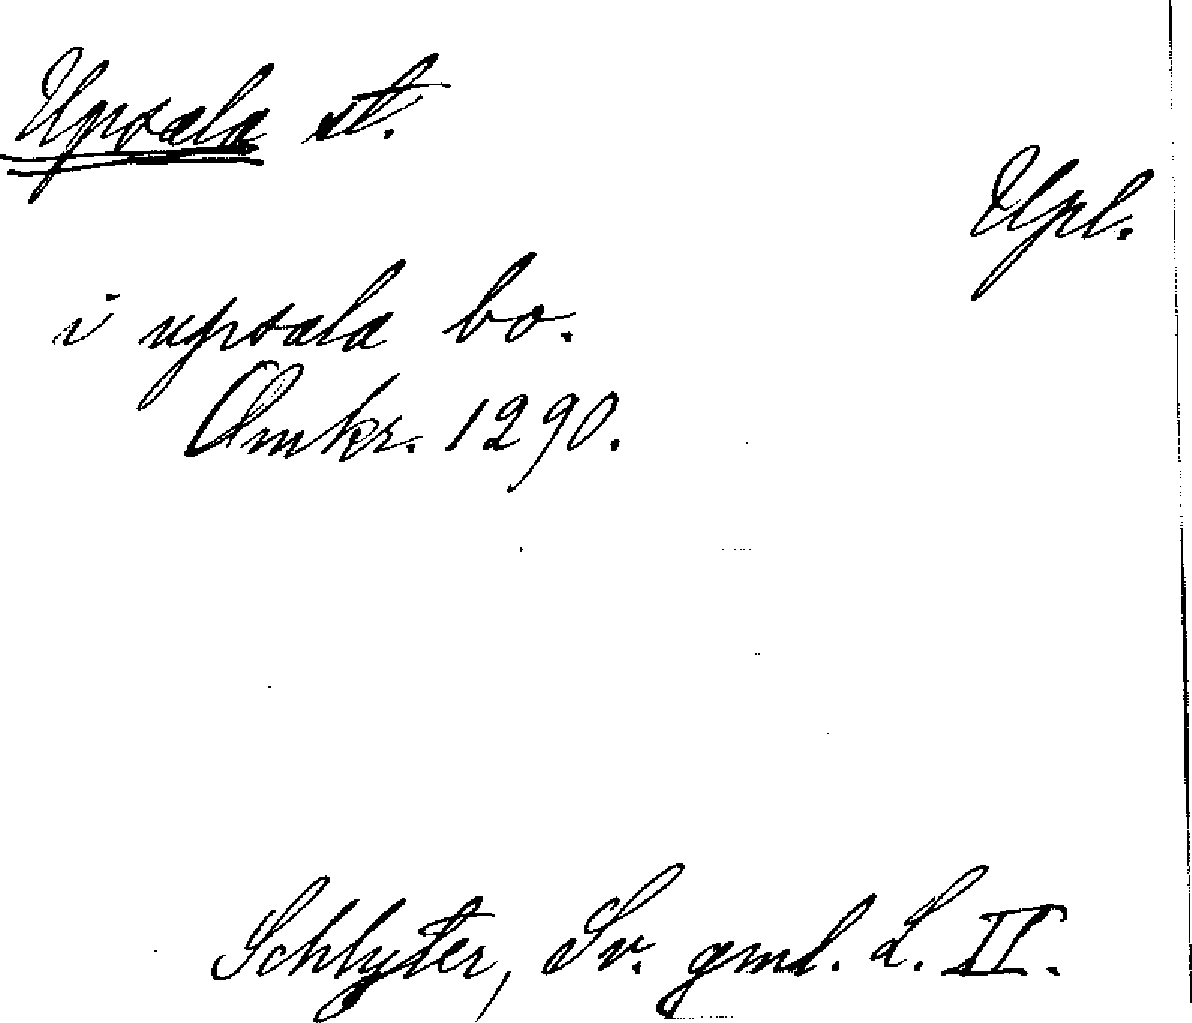 Upsala st.
Upl.
i upsala bo.
Omkr. 1290.
Schlyter, Sv. gml. L. II.